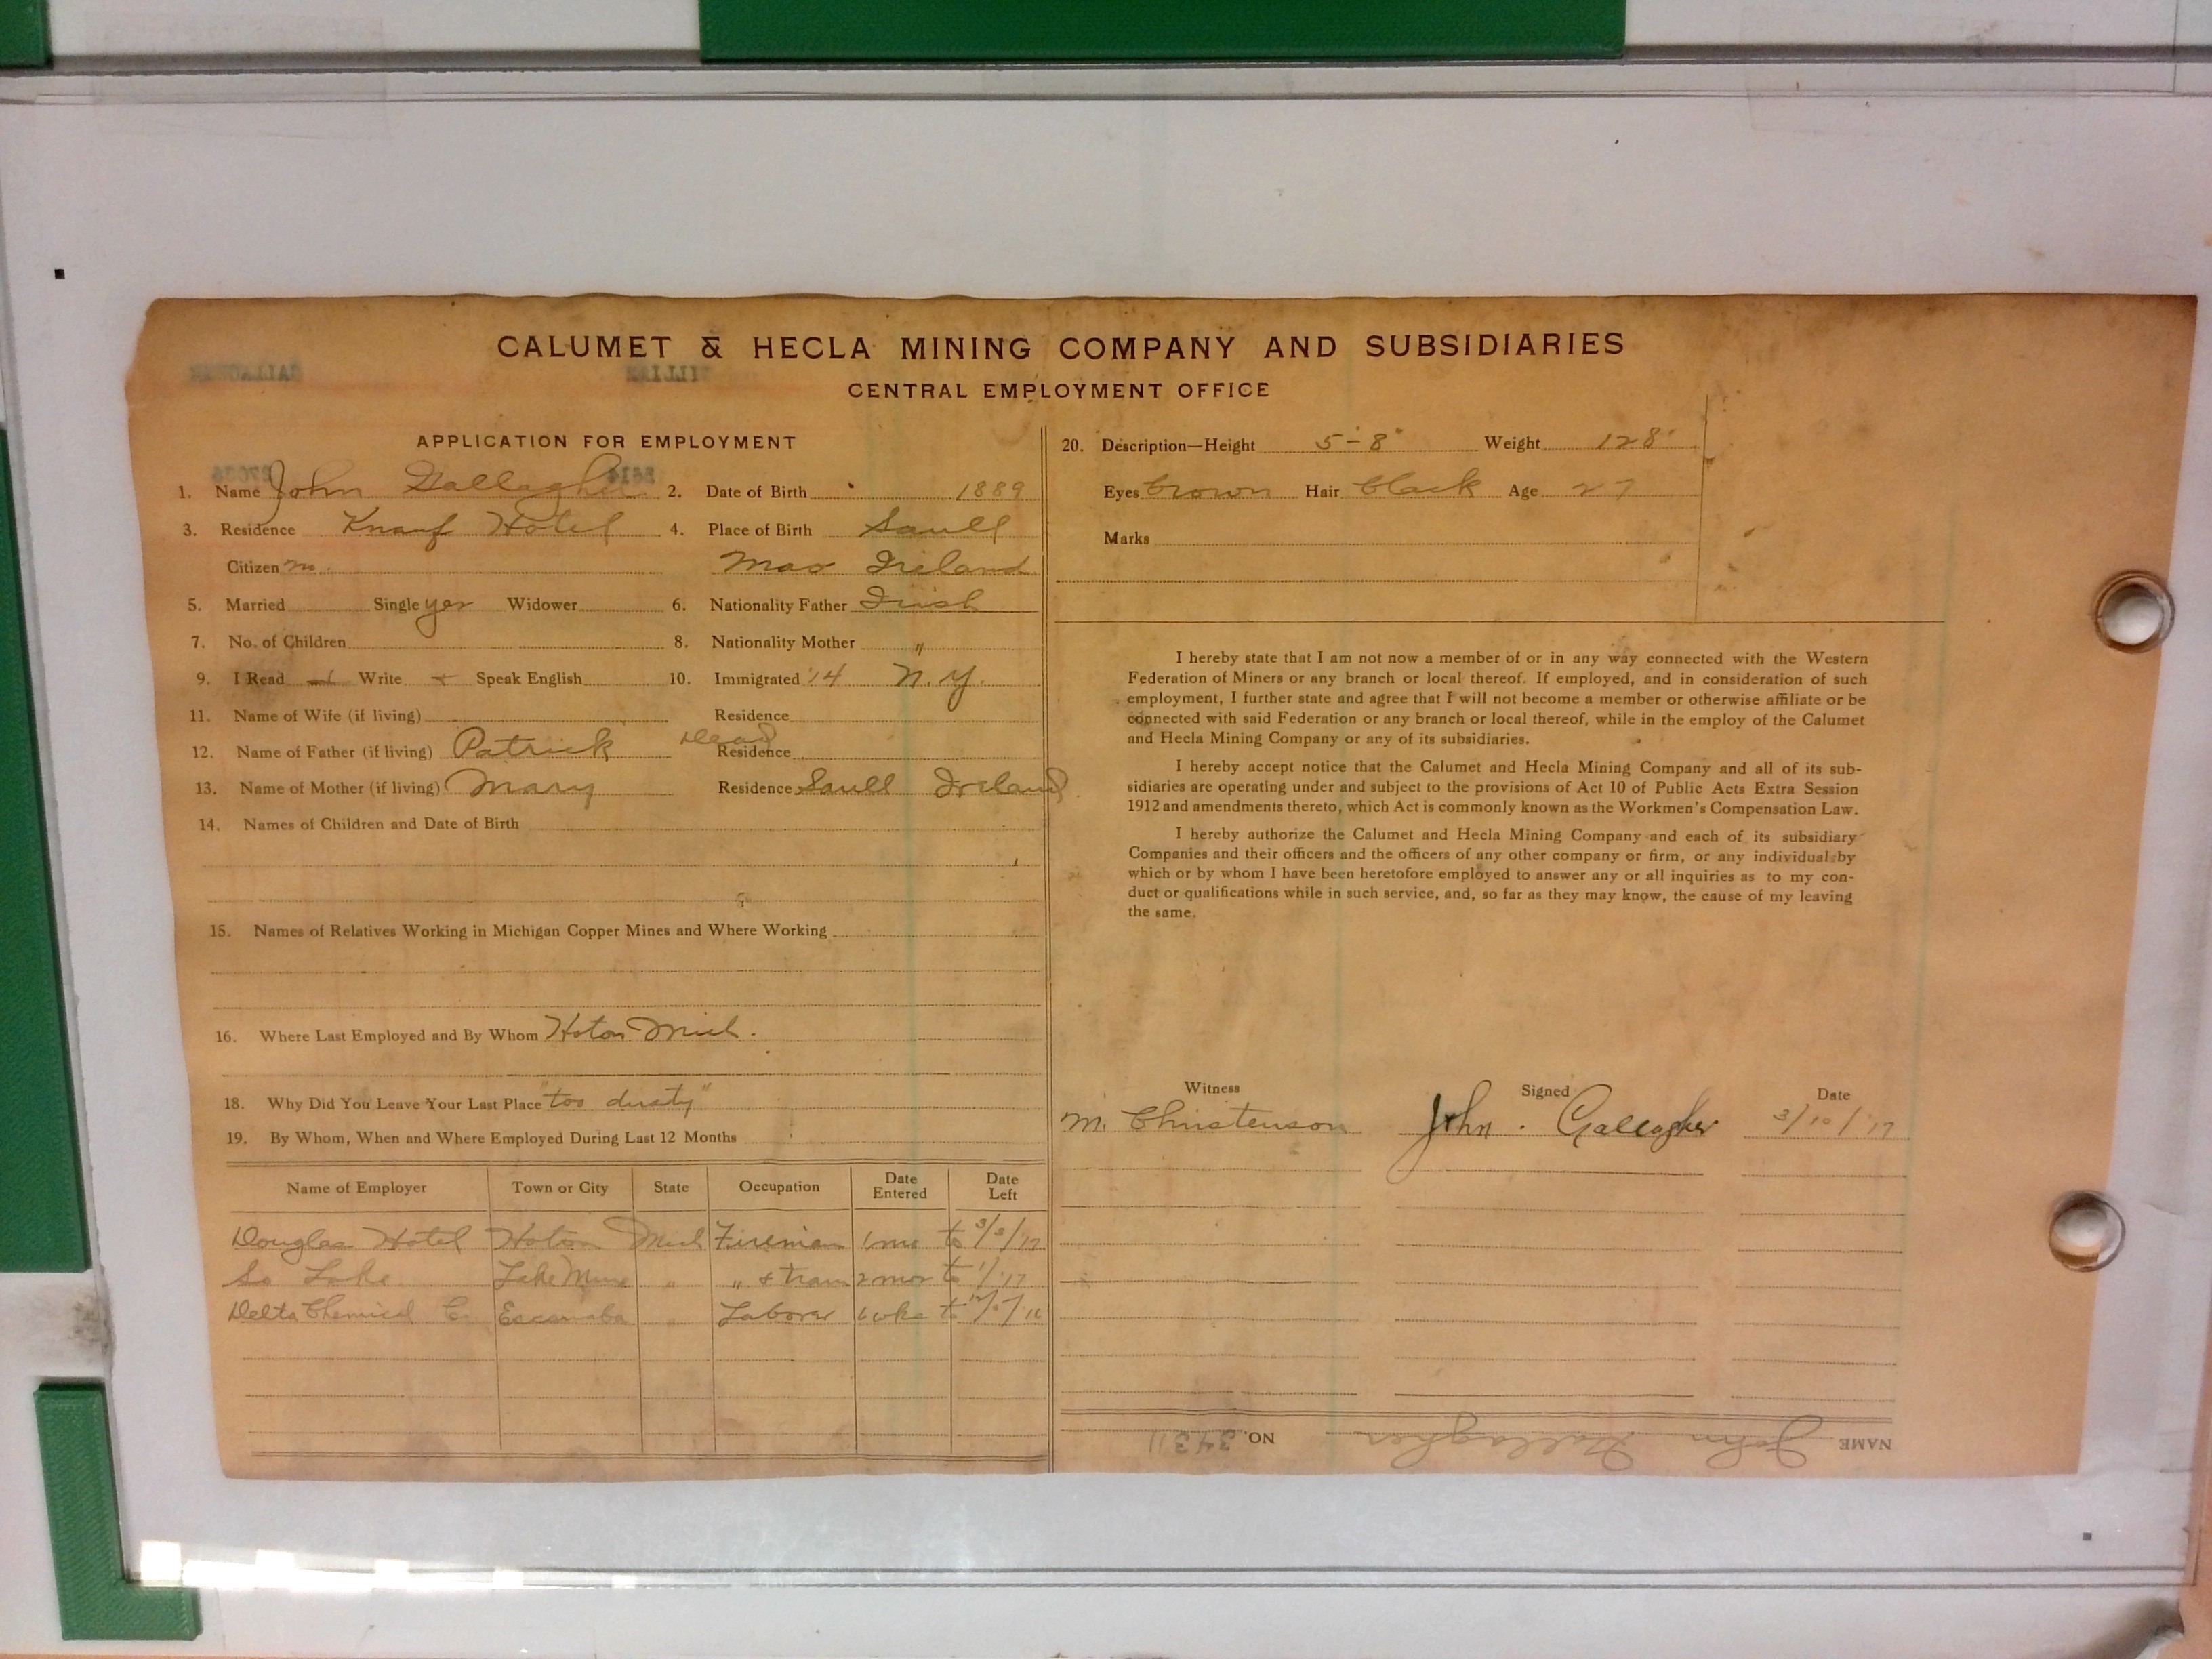 CALUMET & HECLA MINING COMPANY AND SUBSIDIARIES
CENTRAL EMPLOYMENT OFFICE
APPLICATION FOR EMPLOYMENT
1. Name John Gallagher 2. Date of Birth 1889
3. Residence Knauf Hotel 4. Place of Birth Saull
Citizen no. Mao Ireland
5. Married Single yes Widower 6. Nationality Father Irish
7. No. of Children 8. Nationality Mother "
9. I Read Write + Speak English 10. Immigrated '14 N.Y.
11. Name of Wife (if living) Residence
12. Name of Father (if living) Patrick Dead Residence
13. Name of Mother (if living) Mary Residence Saull Ireland
14. Names of Children and Date of Birth
15. Names of Relatives Working in Michigan Copper Mines and Where Working
16. Where Last Employed and By Whom Hoton Mich.
18. Why Did You Leave Your Last Place "too dusty"
19. By Whom, When and Where Employed During Last 12 Months
Name of Employer Town or City State Occupation Date Entered Date Left
Douglas Hotel Hoton Mich Fireman 1 mo to 3/3/17
So Lake Lake Mine " " & tram 2 mos to 1/'17
Delta Chemical C. Escanaba " Laborer 6 wks to /16
20. Description—Height 5-8" Weight 128
Eyes brown Hair black Age 27
Marks
I hereby state that I am not now a member of or in any way connected with the Western
Federation of Miners or any branch or local thereof. If employed, and in consideration of such
employment, I further state and agree that I will not become a member or otherwise affiliate or be
connected with said Federation or any branch or local thereof, while in the employ of the Calumet
and Hecla Mining Company or any of its subsidiaries.
I hereby accept notice that the Calumet and Hecla Mining Company and all of its sub-
sidiaries are operating under and subject to the provisions of Act 10 of Public Acts Extra Session
1912 and amendments thereto, which Act is commonly known as the Workmen's Compensation Law.
I hereby authorize the Calumet and Hecla Mining Company and each of its subsidiary
Companies and their officers and the officers of any other company or firm, or any individual by
which or by whom I have been heretofore employed to answer any or all inquiries as to my con-
duct or qualifications while in such service, and, so far as they may know, the cause of my leaving
the same.
Witness Signed Date
M. Christenson John. Gallagher 3/10/'17
NAME John Gallagher NO. 34311